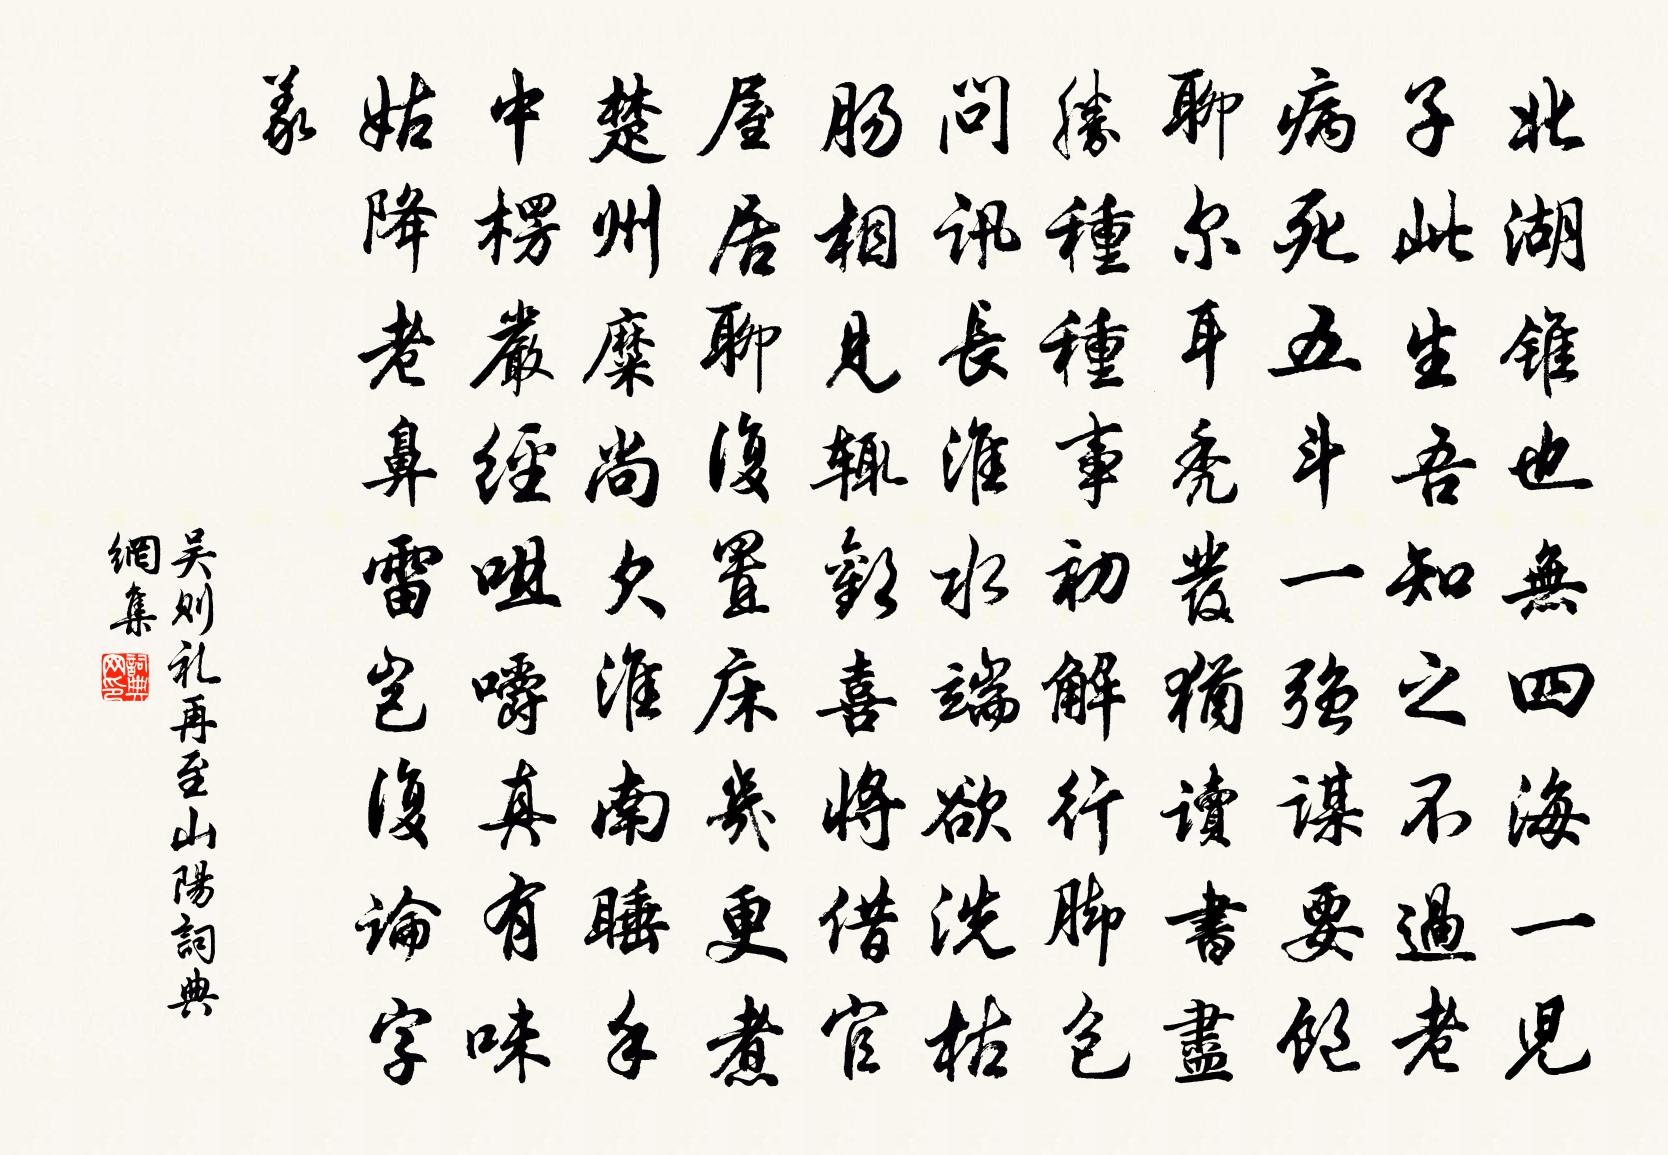 北湖錐也無四海一兒
子此生吾知之不過老
病死五斗一强謀要飽
聊尔耳禿發猶讀書盡
勝種種事初解行脚包
問訊長淮水端欲洗枯
腸相見輒歡喜將借官
屋居聊復置床幾更煮
楚州糜尚欠淮南睡手
中楞嚴經咀嚼真有味
姑降老鼻雷豈復論字
義
吴則礼再至山陽詞典
網集
詞典
网印